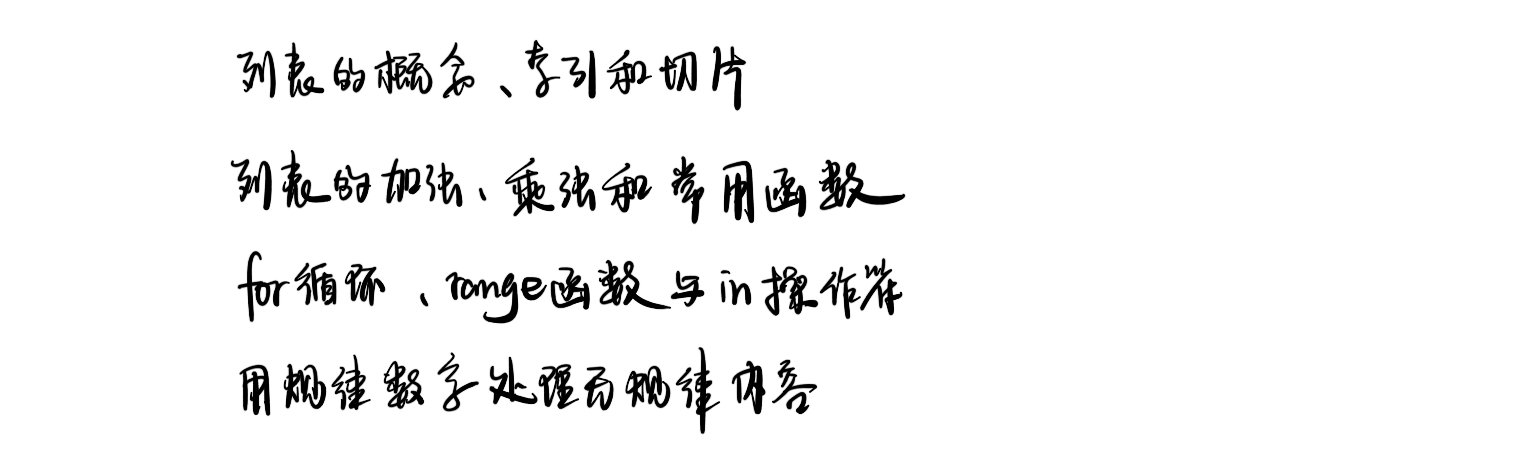 列表的概念、索引和切片
列表的加法、乘法和常用函数
for循环、range函数与in操作符
用规律数字处理无规律内容